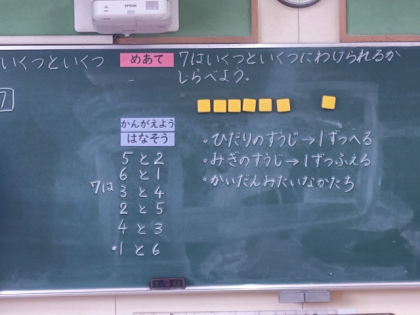 EPSON
いくつといくつ
めあて
7はいくつといくつにわけられるか
しらべよう.
7
かんがえよう
はなそう
7は
5と2
6と1
3と4
2と5
4と3
・1と6
・ひだりのすうじ→1ずつへる
・みぎのすうじ→1ずつふえる
・かいだんみたいなかたち